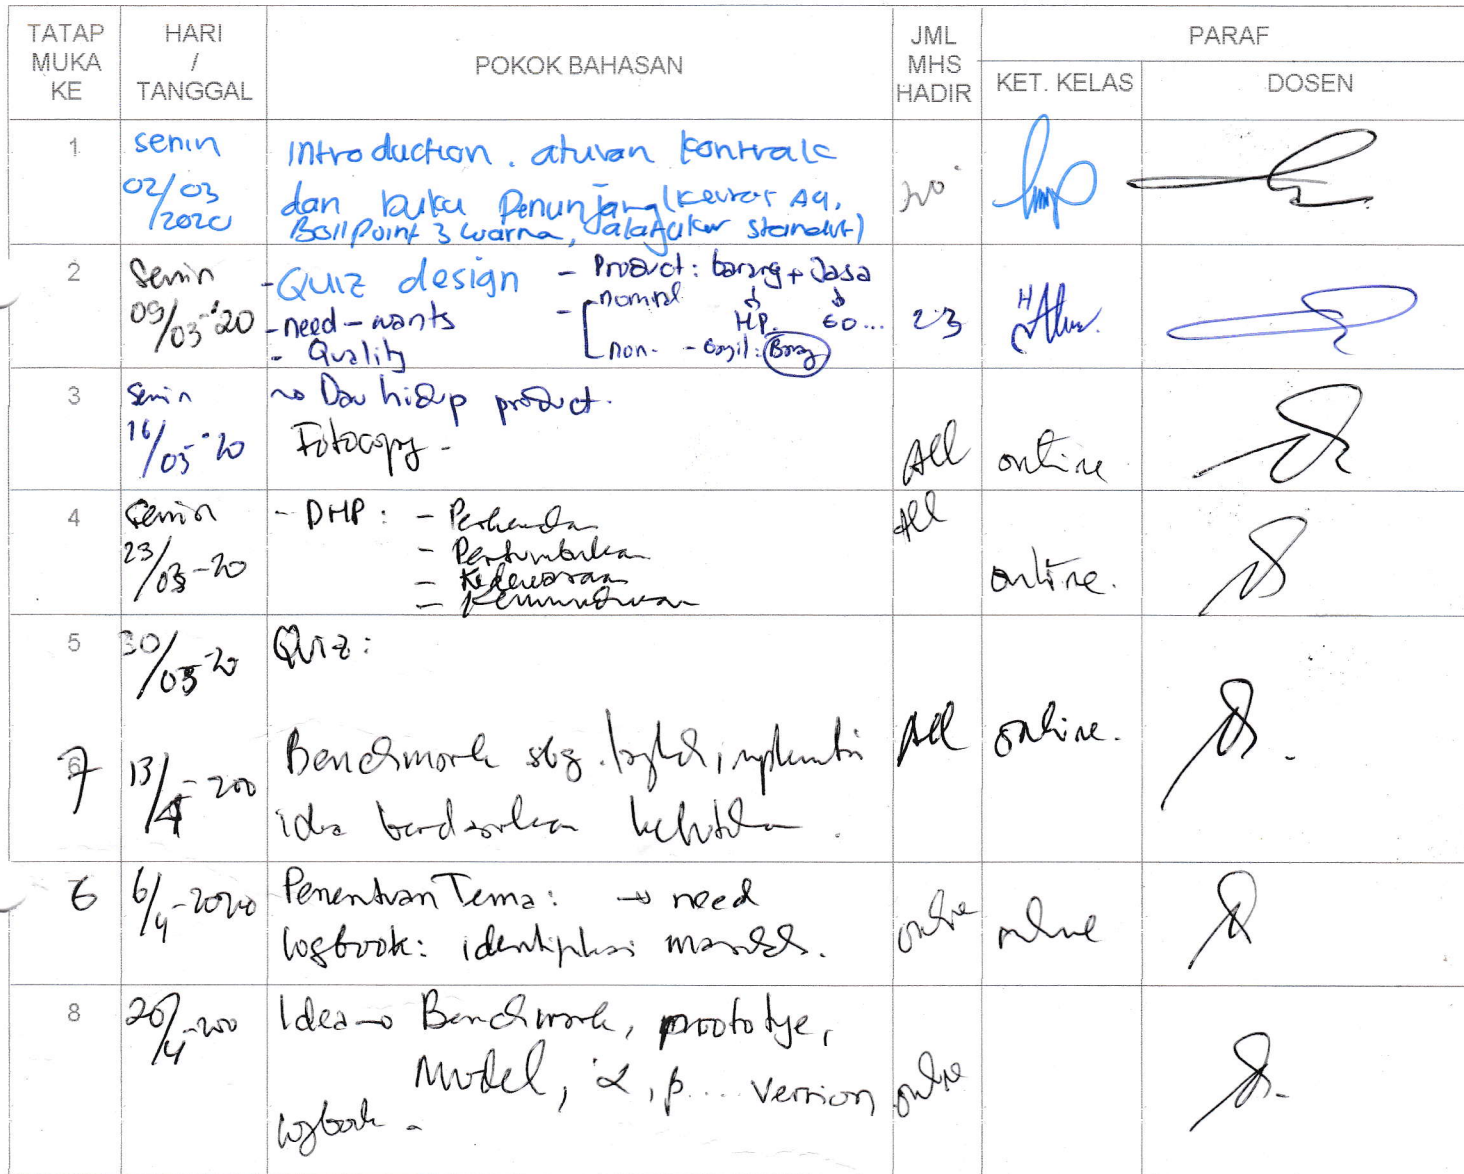 TATAP MUKA KE
HARI / TANGGAL
POKOK BAHASAN
JML MHS HADIR
PARAF
KET. KELAS
DOSEN
1
senin
02/03/2020
Introduction. aturan kontrak
dan buku Penunjang (kertas A4,
Ballpoint 3 warna,
20
2
Senin
09/03-'20
- Quiz design
- need - wants
- Quality
- Product: barang + Jasa
nominal
HP. GO...
non-
23
3
Senin
16/03-'20
hidup product.
Fotocopy -
All
online
4
Senin
23/03-20
- DHP: - Perkenalan
- Pertumbuhan
- Kedewasaan
- Kemunduran
All
online.
5
30/03-20
Quiz:
7
13/4-200
Benchmark sbg.
idea berdasarkan
All
online.
6
6/4-2020
Penentuan Tema: → need
logbook: identifikasi
online
online
8
20/4-200
Idea → Benchmark, prototye,
Model, α, β.... version
logbook -
online